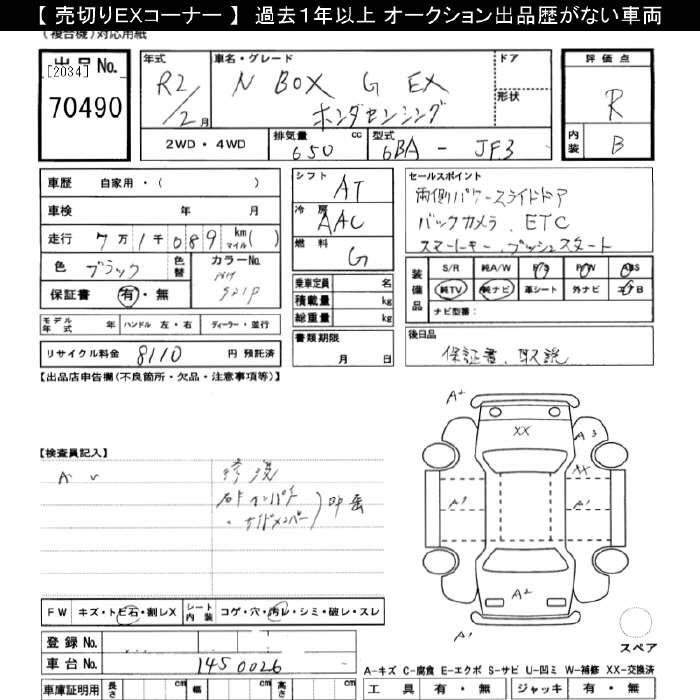 【 売切りEXコーナー 】 過去1年以上 オークション出品歴がない車両
(複合機)対応用紙
出品 No.
[2034]
70490
年式
R2/2月
車名・グレード
N BOX G EX
ホンダセンシング
ドア
形状
評価点
R
内装
B
2WD・4WD
排気量
650
cc
型式
6BA - JF3
車歴 自家用・( )
車検 年 月
走行 7万1千089 km マイル( )
色 ブラック
色替
カラーNo.
保証書 有・無
シフト
AT
冷房
AAC
燃料
G
乗車定員 名
積載量 kg
総重量 kg
書類期限
月 日
セールスポイント
両側パワースライドドア
バックカメラ、ETC
スマートキー、プッシュスタート
装備品
S/R 純A/W P/S P/W ABS
純TV 純ナビ 革シート 外ナビ エアB
ナビ型番:
モデル年式 年
ハンドル 左・右
ディーラー・並行
リサイクル料金 8110 円 預託済
後日品
保証書、取説
【出品店申告欄(不良箇所・欠品・注意事項等)】
【検査員記入】
A U
修復
右Fインパネ
・サイドメンバー
A2
XX
A3
XX
A1
A1
A2
A1
スペア
FW キズ・トビ石・割レX
シート内装 コゲ・穴・汚レ・シミ・破レ・スレ
登録 No.
車台 No. 1450026
A-キズ C-腐食 E-エクボ S-サビ U-凹ミ W-補修 XX-交換済
車庫証明用 長さ cm 幅 cm 高さ cm
工具 有・無 ジャッキ 有・無